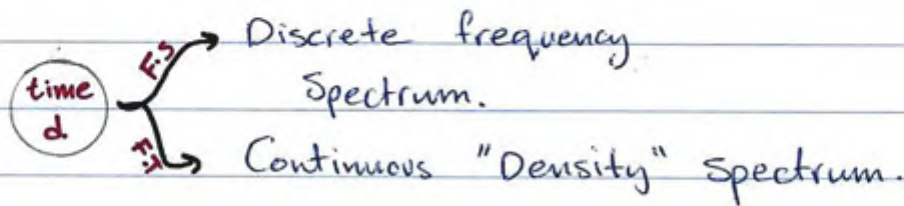 F.S
Discrete frequency
Spectrum.
time
d.
F.T
Continuous "Density" Spectrum.